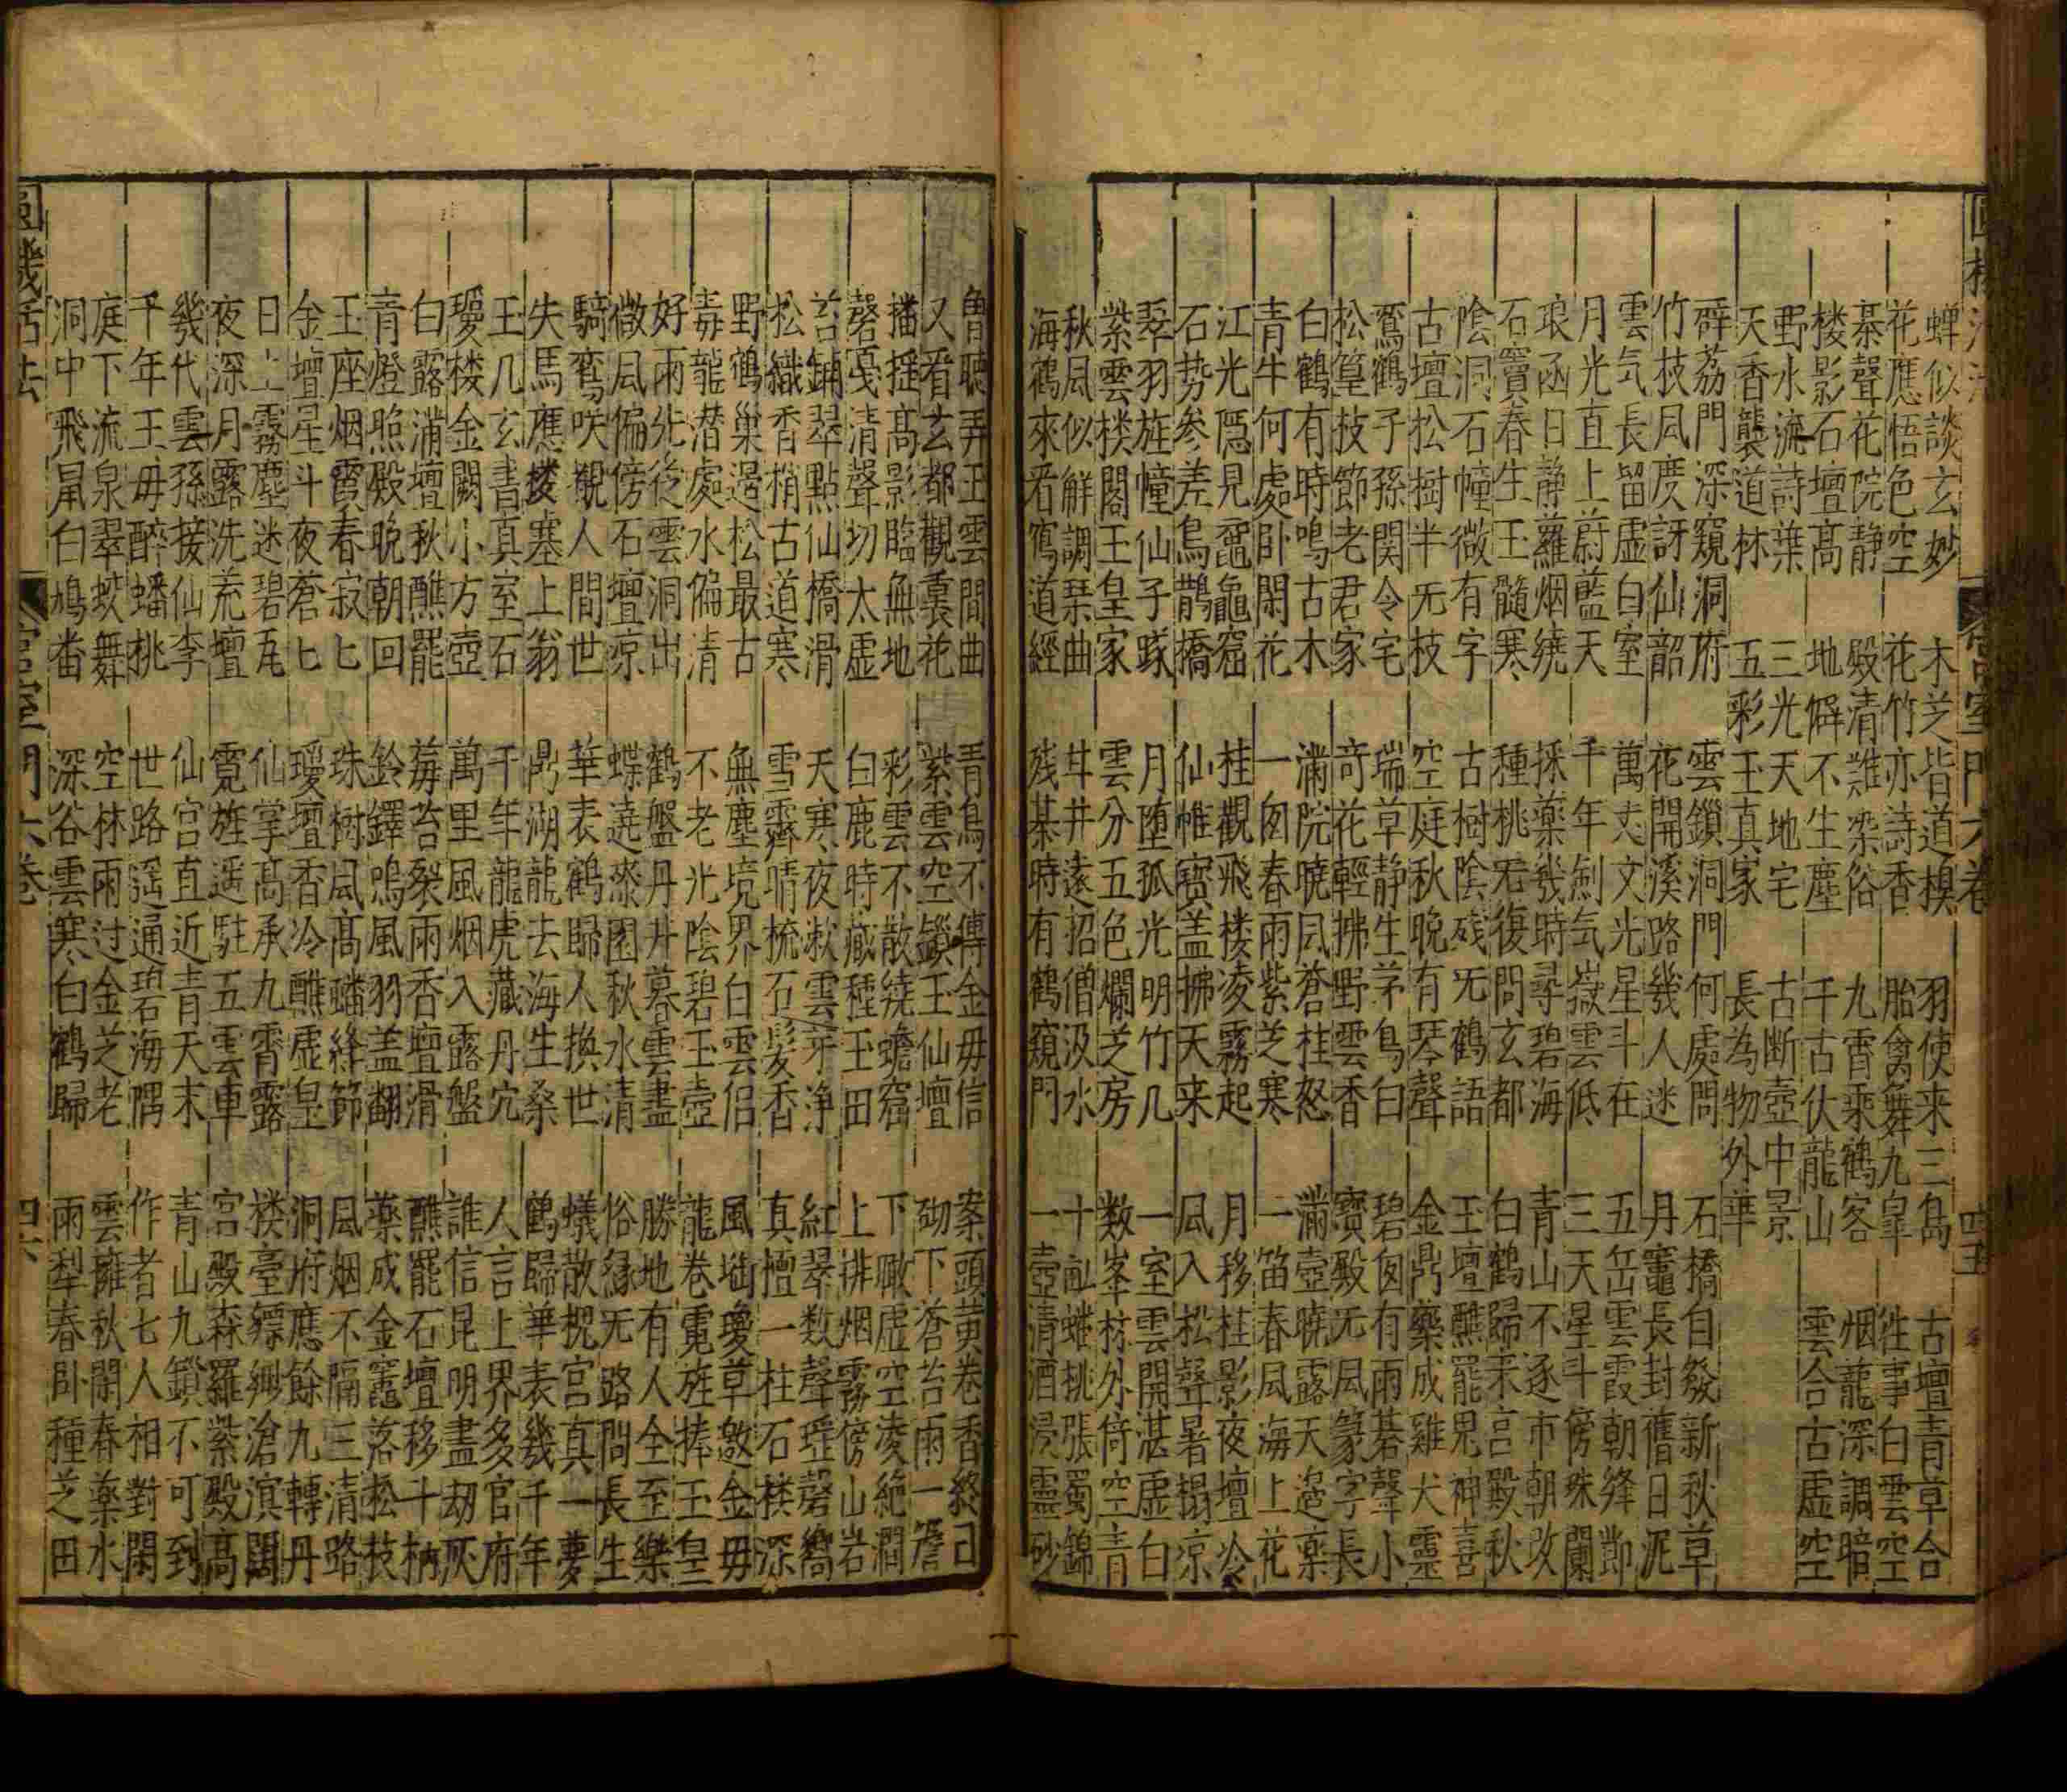 圓機活法
宫室門六巻 四五
蟬似談玄妙 木芝皆道模 羽使来三島 古壇青草合
花應悟色空 花竹亦詩香 胎禽舞九皐 往事白雲空
棊聲花院静 殿清難染俗 九霄乘鶴客 烟龍深調暗
楼影石壇髙 地僻不生塵 千古伏龍山 雲合古虚空
野水流詩葉 三光天地宅 古断壺中景
天香襲道林 五彩玉真家 長為物外華
薜荔門深窺洞府 雲鎖洞門何處問 石橋白發新秋草
竹枝凨度訝仙韶 花開溪路幾人迷 丹竈長封舊日泥
雲气長留虚白室 萬丈文光星斗在 五岳雲霞朝絳節
月光直上蔚藍天 千年劍气嶽雲低 三天星斗傍珠闌
琅函日静蘿烟繞 採藥幾時尋碧海 青山不逐市朝改
石竇春生玉髓寒 種桃旡復問玄都 白鶴歸来宫殿秋
陰洞石幢微有字 古樹陰残旡鶴語 玉壇醮罷鬼神喜
古壇松樹半旡枝 空庭秋晚有琴聲 金鼎藥成雞犬靈
鴛鶴子孫関令宅 瑞草静生茅鳥白 碧囱有雨碁聲小
松篁技節老君家 竒花輕拂野雲香 寳殿旡凨篆字長
白鶴有時鳴古木 滿院曉凨蒼桂怒 滿壺曉露天邉藥
青牛何處卧閑花 一囱春雨紫芝寒 一笛春凨海上花
江光隠見黿龜窟 桂觀飛楼凌霧起 月移桂影夜壇冷
石势参差烏鵲橋 仙帷寳盖拂天来 凨入松聲暑榻凉
翠羽旌幢仙子隊 月堕孤光明竹几 一室雲開湛虚白
紫雲楼閣玉皇家 雲分五色爛芝房 数峯外倚空青
秋凨似觧調琹曲 井遠招僧汲水 十畝蟠桃張蜀錦
海鶴來看寫道經 残棊時有鶴窺門 一壺清酒浸靈砂
曽聴弄玉雲間曲 青鳥不傳金毋信 案頭黄巻香終日
又看玄都觀裏花 紫雲空鎖玉仙壇 砌下蒼苔雨一簷
播摇髙影臨無地 彩雲不散繞蟾窟 下瞰虚空凌絶澗
磬戛清聲切太虚 白鹿時藏種玉田 上排烟霧傍山岩
苔鋪翠點仙橋滑 天寒夜漱雲牙浄 紅翠数聲瑶磬嚮
松織香梢古道寒 雪霽晴梳石髪香 真檀一柱石楼深
野鶴巢邉松最古 無塵境界白雲侣 風墖瓊草邀金毋
毒龍潜處水偏清 不老光陰碧玉壺 龍巻霓旌捧玉皇
好雨先後雲洞出 鶴盤丹井暮雲盡 勝地有人全至樂
微凨偏傍石壇凉 蝶遶漆園秋水清 俗縁旡路問長生
騎鸞咲觀人間世 華表鶴歸人換世 蟻散槐宫真一夢
失馬應楼塞上翁 鼎湖龍去海生桑 鶴歸華表幾千年
玉几玄書真室石 千年龍虎藏丹穴 人言上界多官府
瓊楼金闕小方壺 萬里風烟入露盤 誰信昆明盡刼灰
白露滿壇秋醮罷 莓苔裂雨香壇滑 醮罷石壇移十枘
青燈照殿晚朝回 鈴鐸嗚風羽盖翻 藥成金竈落松枝
玉座烟霞春寂匕 珠樹凨髙旛絳節 凨烟不隔三清路
金壇星斗夜蒼匕 瓊壇香冷醮虚皇 洞府應餘九轉丹
日上霧塵迷碧瓦 仙掌髙承九霄露 楼臺縹緲滄溟闊
夜深月露洗荒壇 霓旌遥駐五雲車 宫殿森羅紫殿髙
幾代雲孫接仙李 仙宫直近青天末 青山九鎖不可到
千年王毋醉蟠桃 世路遥通碧海隅 作者七人相對閑
庭下流泉翠蛟舞 空林雨过金芝老 雲擁秋閑春藥水
洞中飛鼠白鳩畨 深谷雲寒白鶴歸 雨犁春卧種芝田
圓機活法
宫室門六巻 四六